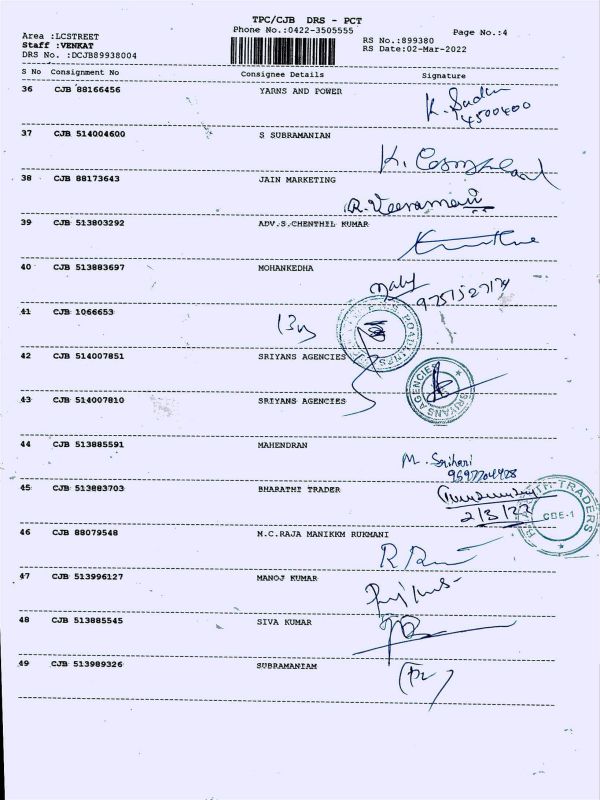 TPC/CJB DRS - PCT
Phone No.:0422-3505555
Page No.:4
Area :LCSTREET
Staff :VENKAT
DRS No. :DCJB89938004
RS No.:899380
RS Date:02-Mar-2022
S No Consignment No Consignee Details Signature
36 CJB 88166456 YARNS AND POWER
K. Sadan
4500400
37 CJB 514004600 S SUBRAMANIAN
38 CJB 88173643 JAIN MARKETING
R. Veeramani
39 CJB 513803292 ADV.S.CHENTHIL KUMAR
40 CJB 513883697 MOHANKEDHA
9751527174
41 CJB 1066653
42 CJB 514007851 SRIYANS AGENCIES
SRIYANS AGENCIES
43 CJB 514007810 SRIYANS AGENCIES
44 CJB 513885591 MAHENDRAN
M. Srihari
45 CJB 513883703 BHARATHI TRADER
2/3/22
TRADERS
CBE-1
46 CJB 88079548 M.C.RAJA MANIKKM RUKMANI
47 CJB 513996127 MANOJ KUMAR
48 CJB 513885545 SIVA KUMAR
49 CJB 513989326 SUBRAMANIAM